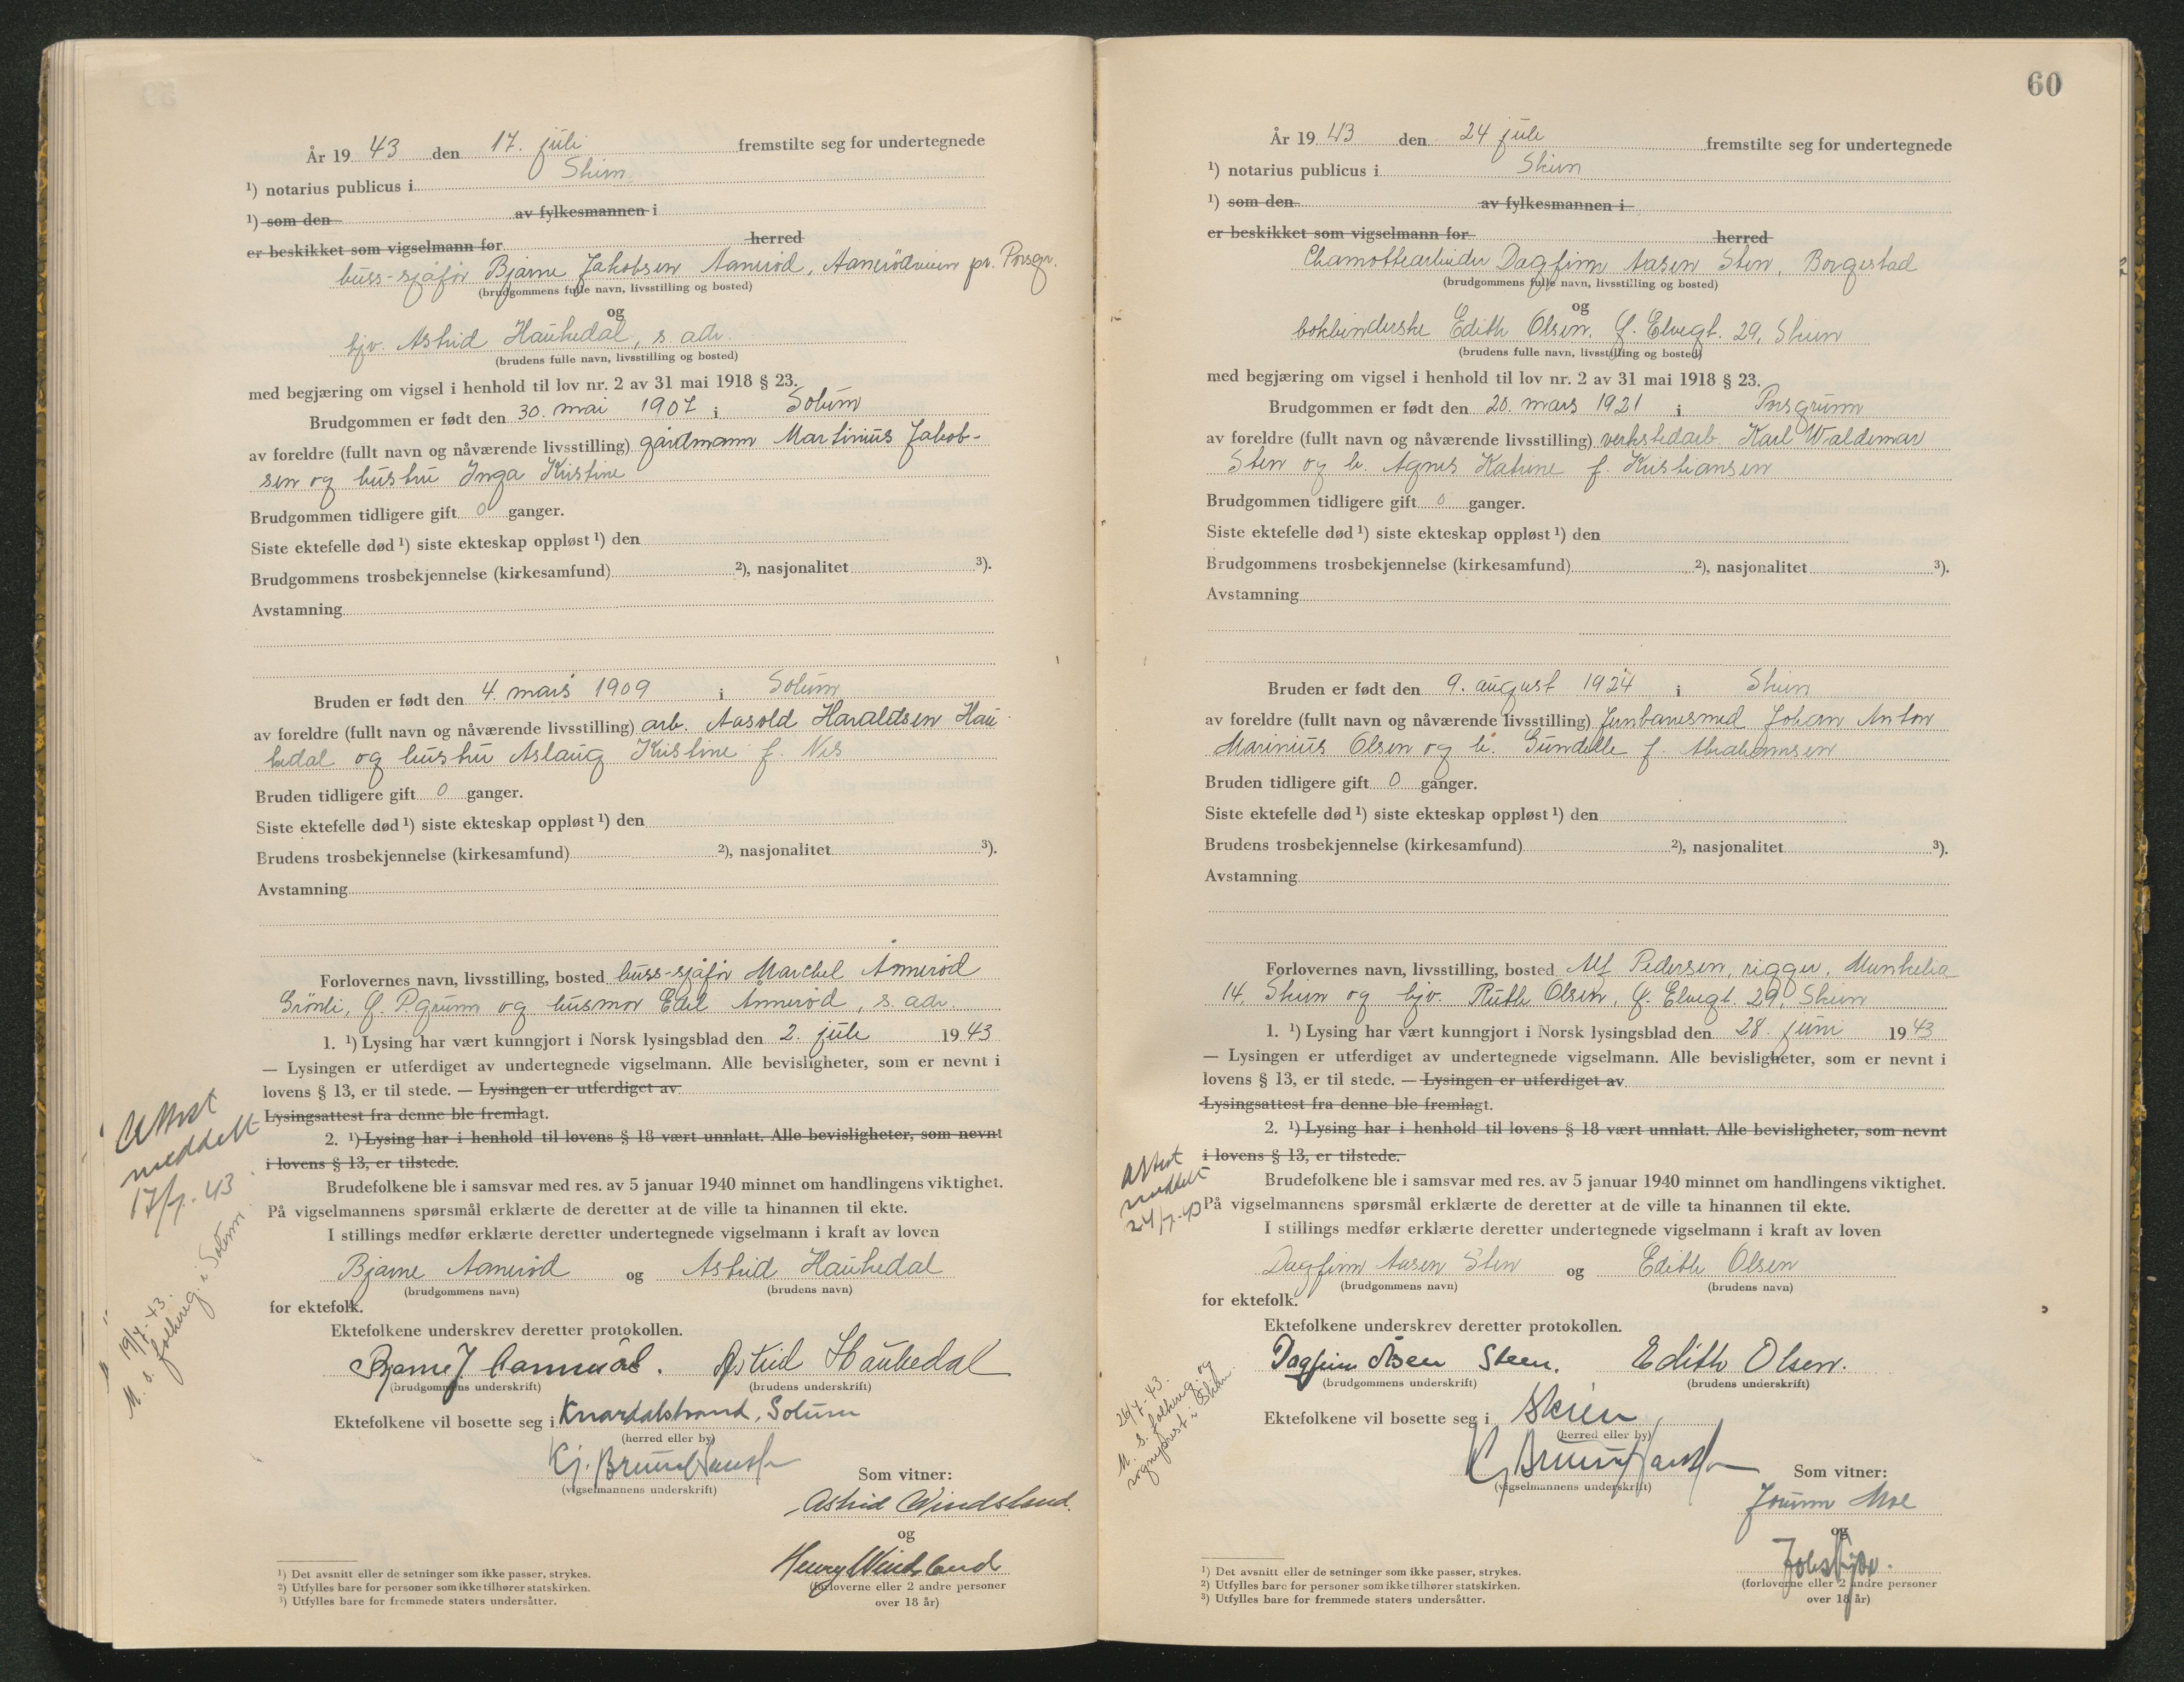 År 19 43 den 17. juli fremstilte seg for undertegnede
¹) notarius publicus i Skien
¹) som den av fylkesmannen i
er beskikket som vigselmann for herred
buss-sjåfør Bjarne Jakobsen Aamerød, pr. Porsgr.
(brudgommens fulle navn, livsstilling og bosted)
og
hjv. Astrid Haukedal, s. adr.
(brudens fulle navn, livsstilling og bosted)
med begjæring om vigsel i henhold til lov nr. 2 av 31 mai 1918 § 23.
Brudgommen er født den 30. mai 1907 i Solum
av foreldre (fullt navn og nåværende livsstilling) gårdmann Martinius Jakob-
sen og hustru Inga Kristine
Brudgommen tidligere gift 0 ganger.
Siste ektefelle død ¹) siste ekteskap oppløst ¹) den
Brudgommens trosbekjennelse (kirkesamfund) ²), nasjonalitet ³).
Avstamning
Bruden er født den 4. mars 1909 i Solum
av foreldre (fullt navn og nåværende livsstilling) arb. Aasold Haraldsen Hau-
kedal og hustru Aslaug Kristine f. Nes
Bruden tidligere gift 0 ganger.
Siste ektefelle død ¹) siste ekteskap oppløst ¹) den
Brudens trosbekjennelse (kirkesamfund) ²), nasjonalitet ³).
Avstamning
Forlovernes navn, livsstilling, bosted buss-sjåfør Marchel Åmmerød
Grönli, G. P.grunn og husmor Edel Åmmerød, s. adr.
1. ¹) Lysing har vært kunngjort i Norsk lysingsblad den 2. juli 19 43
— Lysingen er utferdiget av undertegnede vigselmann. Alle bevisligheter, som er nevnt i
lovens § 13, er til stede. — Lysingen er utferdiget av
Lysingsattest fra denne ble fremlagt.
2. ¹) Lysing har i henhold til lovens § 18 vært unnlatt. Alle bevisligheter, som nevnt
i lovens § 13, er tilstede.
Brudefolkene ble i samsvar med res. av 5 januar 1940 minnet om handlingens viktighet.
På vigselmannens spørsmål erklærte de deretter at de ville ta hinannen til ekte.
I stillings medfør erklærte deretter undertegnede vigselmann i kraft av loven
Bjarne Aamerød og Astrid Haukedal
(brudgommens navn) (brudens navn)
for ektefolk.
Ektefolkene underskrev deretter protokollen.
Bjarne J. Aamerød. Astrid Haukedal
(brudgommens underskrift) (brudens underskrift)
Ektefolkene vil bosette seg i Knardalstrand, Solum
(herred eller by)
Kj. Bruun Hanssen
(vigselmannens underskrift)
Som vitner:
Astrid Windsland.
og
Henry Windsland
(forloverne eller 2 andre personer
over 18 år)
¹) Det avsnitt eller de setninger som ikke passer, strykes.
²) Utfylles bare for personer som ikke tilhører statskirken.
³) Utfylles bare for fremmede staters undersåtter.
Attest
meddelt
17/7-43
19/7-43.
M. s. folkereg. i Solum.
60
År 19 43 den 24 juli fremstilte seg for undertegnede
¹) notarius publicus i Skien
¹) som den av fylkesmannen i
er beskikket som vigselmann for herred
Chamottearbeider Dagfinn Aasen Sten, Borgestad
(brudgommens fulle navn, livsstilling og bosted)
og
bokbinderske Edith Olsen, G. Elvegt. 29, Skien
(brudens fulle navn, livsstilling og bosted)
med begjæring om vigsel i henhold til lov nr. 2 av 31 mai 1918 § 23.
Brudgommen er født den 20. mars 1921 i Porsgrunn
av foreldre (fullt navn og nåværende livsstilling) verkstedarb. Karl Waldemar
Sten og h. Agnes Katrine f. Kristiansen
Brudgommen tidligere gift 0 ganger.
Siste ektefelle død ¹) siste ekteskap oppløst ¹) den
Brudgommens trosbekjennelse (kirkesamfund) ²), nasjonalitet ³).
Avstamning
Bruden er født den 9. august 1924 i Skien
av foreldre (fullt navn og nåværende livsstilling) Jernbanesmed Johan Anton
Marinius Olsen og h. Gundelle f. Abrahamsen
Bruden tidligere gift 0 ganger.
Siste ektefelle død ¹) siste ekteskap oppløst ¹) den
Brudens trosbekjennelse (kirkesamfund) ²), nasjonalitet ³).
Avstamning
Forlovernes navn, livsstilling, bosted Alf Pedersen, rigger, Munkelia
14, Skien og hjv. Ruth Olsen, G. Elvegt. 29, Skien
1. ¹) Lysing har vært kunngjort i Norsk lysingsblad den 28. juni 19 43
— Lysingen er utferdiget av undertegnede vigselmann. Alle bevisligheter, som er nevnt i
lovens § 13, er til stede. — Lysingen er utferdiget av
Lysingsattest fra denne ble fremlagt.
2. ¹) Lysing har i henhold til lovens § 18 vært unnlatt. Alle bevisligheter, som nevnt
i lovens § 13, er tilstede.
Brudefolkene ble i samsvar med res. av 5 januar 1940 minnet om handlingens viktighet.
På vigselmannens spørsmål erklærte de deretter at de ville ta hinannen til ekte.
I stillings medfør erklærte deretter undertegnede vigselmann i kraft av loven
Dagfinn Aasen Sten og Edith Olsen
(brudgommens navn) (brudens navn)
for ektefolk.
Ektefolkene underskrev deretter protokollen.
Dagfinn Åsen Steen. Edith Olsen.
(brudgommens underskrift) (brudens underskrift)
Ektefolkene vil bosette seg i Skien
(herred eller by)
Kj Bruun Hanssen
(vigselmannens underskrift)
Som vitner:
Jorunn Moe
og
(forloverne eller 2 andre personer
over 18 år)
¹) Det avsnitt eller de setninger som ikke passer, strykes.
²) Utfylles bare for personer som ikke tilhører statskirken.
³) Utfylles bare for fremmede staters undersåtter.
Attest
meddelt
24/7-43
26/7-43.
M. s. folkereg. og
sogneprest i Skien